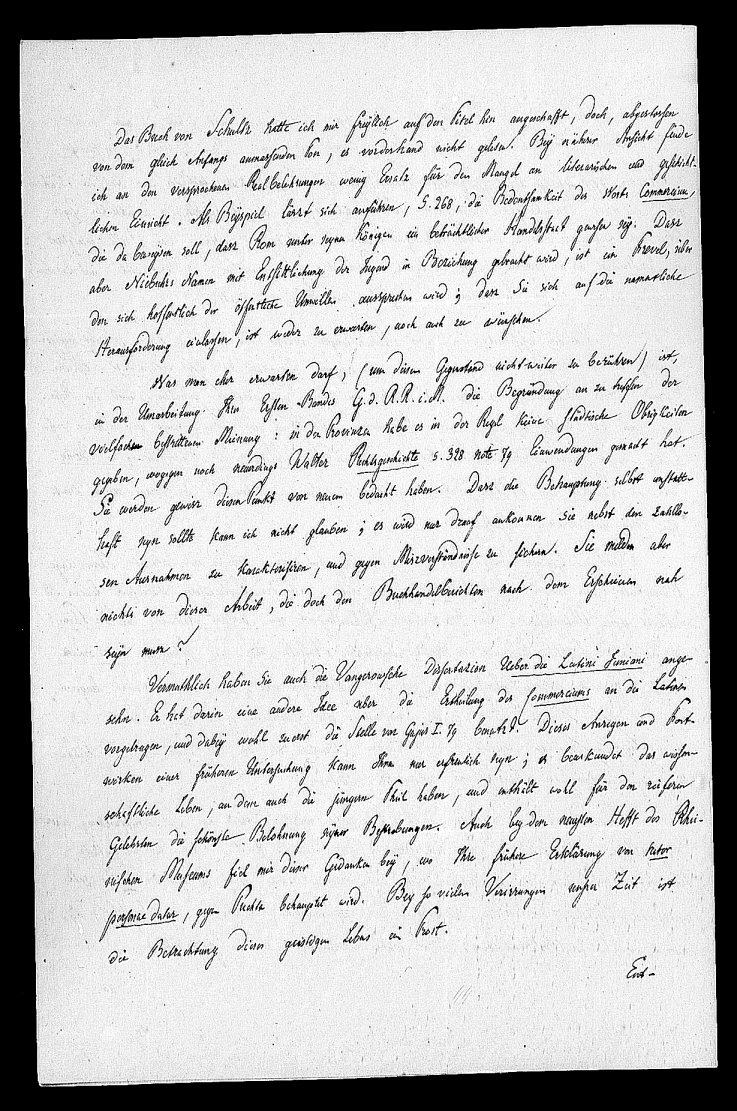 Das Buch von Schultz hatte ich mir freÿlich auf den Titel hin angeschafft, doch, abgestossen
von dem gleich Anfangs anmassenden Ton, es vorderhand nicht gelesen. Beÿ näherer Ansicht finde
ich an den versprochenen Realbelehrungen wenig Ersatz für den Mangel an literarischer und geschicht-
lichen Einsicht. Als Beÿspiel lässt sich anführen, S. 268, die Bedeutsamkeit des Worts Commercium,
die da beweisen soll, dass Rom unter seinen Königen ein beträchtlicher Handelsstaat gewesen seÿ. Dass
aber Niebuhrs Namen mit Entsittlichung der Jugend in Beziehung gebracht wird, ist ein Frevel, über
den sich hoffentlich der öffentliche Unwillen aussprechen wird; dass Sie sich auf die namentliche
Herausforderung einlassen, ist weder zu erwarten, noch auch zu wünschen.
Was man eher erwarten darf, (um diesen Gegenstand nicht weiter zu berühren) ist,
in der Umarbeitung Ihres Ersten Bandes G. d. R. R. i. M. die Begründung anzutreffen der
vielfachen bestrittenen Meinung: in den Provinzen habe es in der Regel keine städtische Obrigkeiten
gegeben, wogegen noch neuerdings Walter Rechtsgeschichte S. 398 note 79 Einwendungen gemacht hat.
Sie werden gewiss diesen Punkt von neuem bedacht haben. Dass die Behauptung selbst unstatt-
haft seyn sollte kann ich nicht glauben; es wird nur drauf ankommen sie nebst den zulässi-
gen Ausnahmen zu karakterisiren, und gegen Missverständnisse zu sichern. Sie melden aber
nichts von dieser Arbeit, die doch den Buchhandelberichten nach dem Erscheinen nah
seÿn muss?
Vermuthlich haben Sie auch die Vangerowsche Dissertazion Ueber die Latini Juniani ange-
sehn. Er hat darin eine andere Idee über die Ertheilung des Commerciums an die Latinen
vorgetragen, und dabeÿ wohl zuerst die Stelle von Gajus I. 79 benutzt. Dieses Anregen und Fort-
wirken einer früheren Untersuchung kann Ihnen nur erfreulich seÿn; es beurkundet das wissen-
schaftliche Leben, an dem auch die jüngern Theil haben, und enthält wohl für den reifern
Gelehrten die schönste Belohnung seiner Bestrebungen. Auch beÿ dem neusten Hefft des Rhei-
nischen Museums fiel mir dieser Gedanken beÿ, wo Ihre frühere Erklärung von tutor
personae datur, gegen Puchta behauptet wird. Beÿ so vielen Verirrungen unsrer Zeit ist
die Betrachtung dieses geistigen Lebens ein Trost.
Ent-